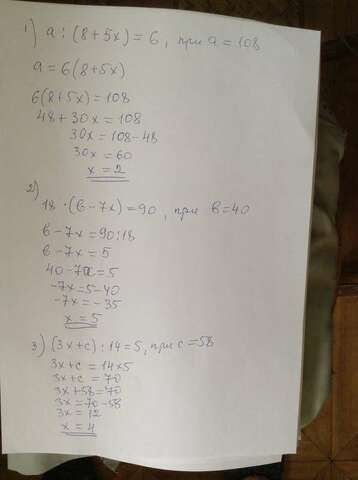 1) a : (8 + 5x) = 6, при a = 108
a = 6(8+5x)
6(8+5x) = 108
48 + 30x = 108
30x = 108 - 48
30x = 60
x = 2
2)
18 · (в - 7x) = 90, при в = 40
в - 7x = 90 : 18
в - 7x = 5
40 - 7x = 5
-7x = 5 - 40
-7x = -35
x = 5
3) (3x + c) : 14 = 5, при c = 58
3x + c = 14 × 5
3x + c = 70
3x + 58 = 70
3x = 70 - 58
3x = 12
x = 4